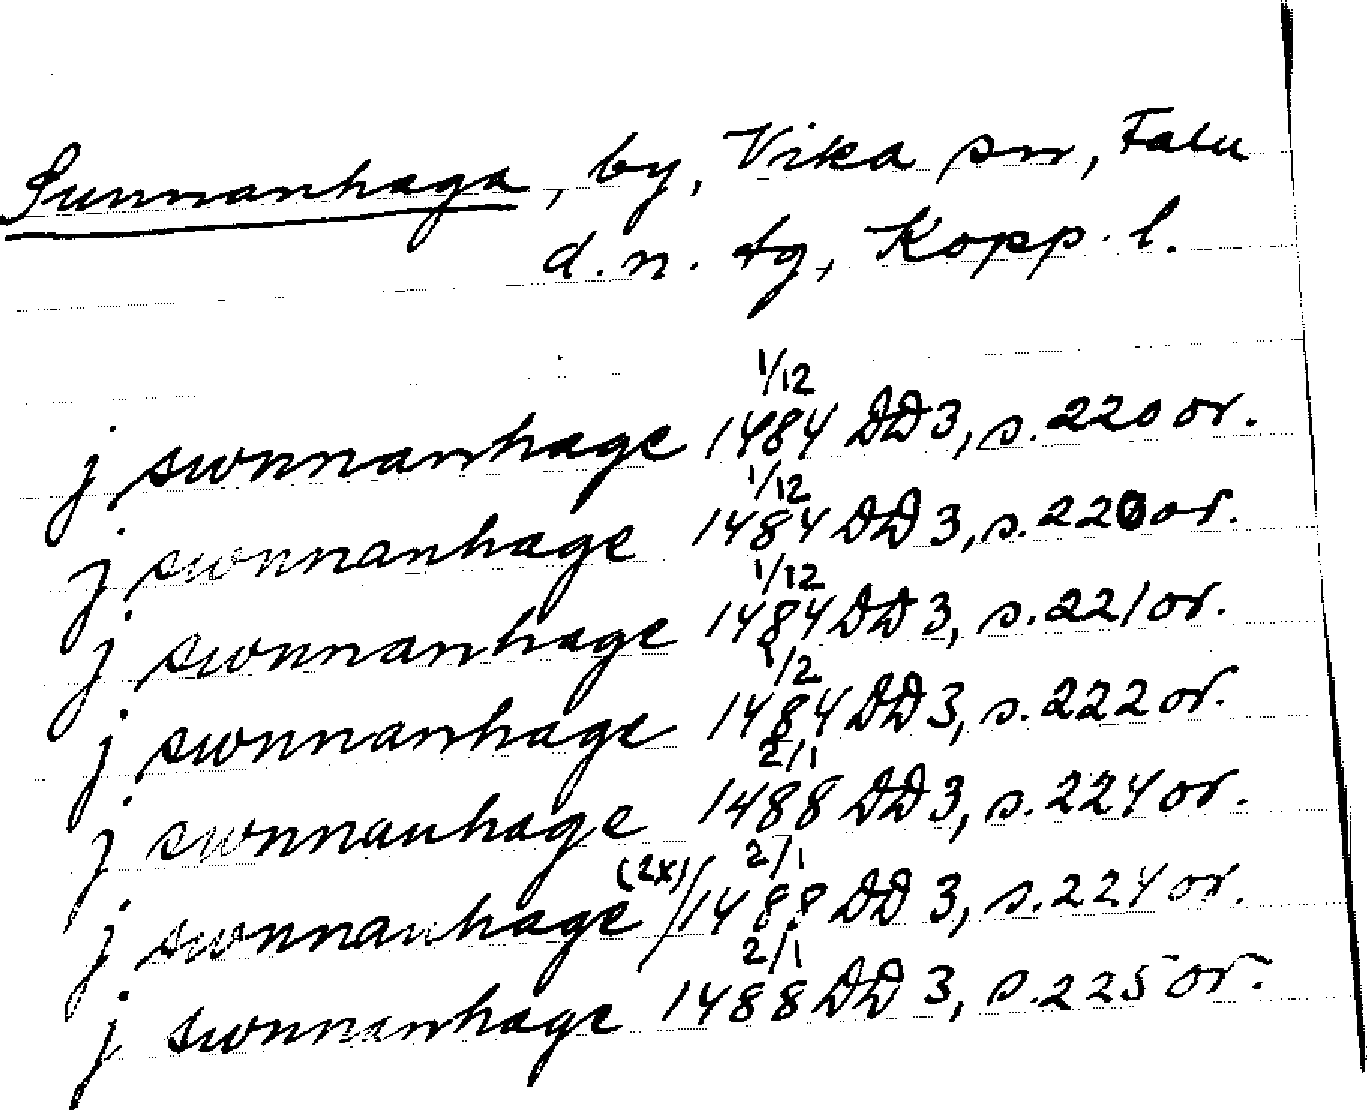 Sunnanhaga, by, Vika sn, Falu
d.n. tg, Kopp. l.
j swnnanhage 1/12 1484 DD 3, s. 220 or.
j swnnanhage 1/12 1484 DD 3, s. 220 or.
j swnnanhage 1/12 1484 DD 3, s. 221 or.
j swnnanhage 1/12 1484 DD 3, s. 222 or.
j swnnanhage 2/1 1488 DD 3, s. 224 or.
j swnnanhage (2x) / 2/1 1488 DD 3, s. 224 or.
j swnnanhage 2/1 1488 DD 3, s. 225 or.